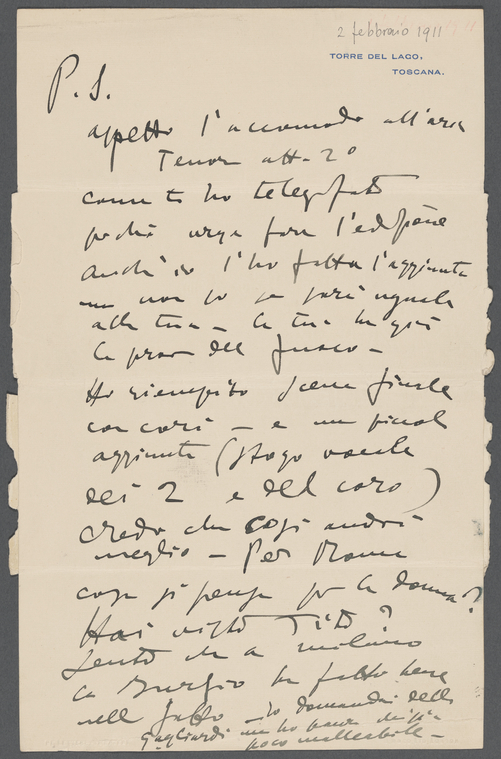 2 febbraio 1911
TORRE DEL LAGO,
TOSCANA.
P.S.
aspetto l'accomodo all'aria
Tenore atto 2º
come ti ho telegrafato
poichè urge fare l'edizione
anch'io l'ho fatta l'aggiunta
ma non so se sarà uguale
alla tua – la tua ha già
la prova del fuoco –
Ho riempito scena finale
con cori – e una piccola
aggiunta (sfogo vocale
dei 2 e del coro)
credo che così andrà
meglio – Per Roma
cosa si pensa per la donna?
Hai visto Tito?
Sento che a milano
la Burzio ha fatto bene
nella – io domandai della
Gagliardi ma ho paura che sia
poco malleabile –